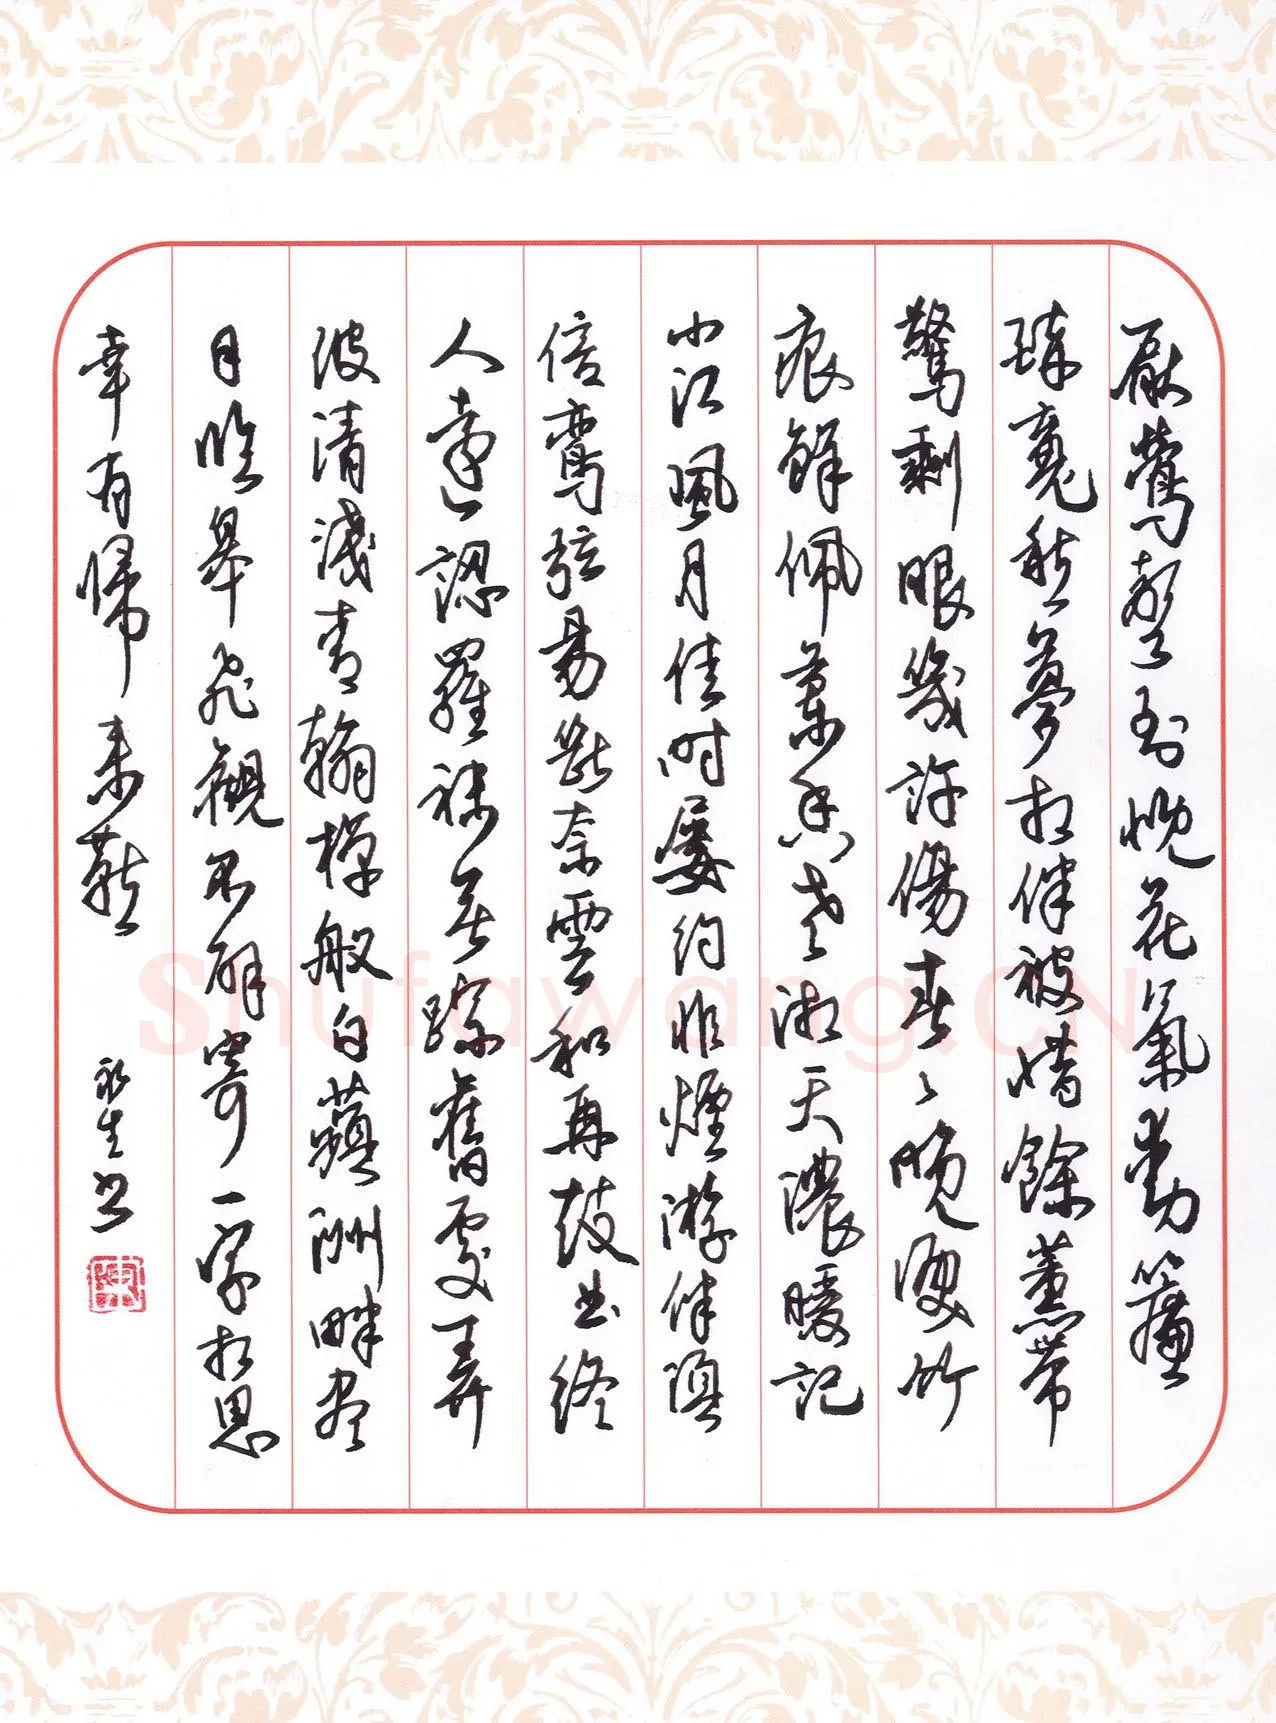 厭鶯聲到枕花氣動簾
醉魂愁夢相伴被惜餘薰帶
驚剩眼幾許傷春々晚淚竹
痕鮮佩蘭香老湘天濃暖記
小江風月佳時屢約非煙游伴須
信鸞弦易斷奈雲和再鼓曲終
人遠認羅襪無蹤舊處弄
波清淺青翰棹舣白蘋洲畔盡
目臨皋飛觀不解寄一字相思
幸有歸来燕
永生書
Shufawang.CN